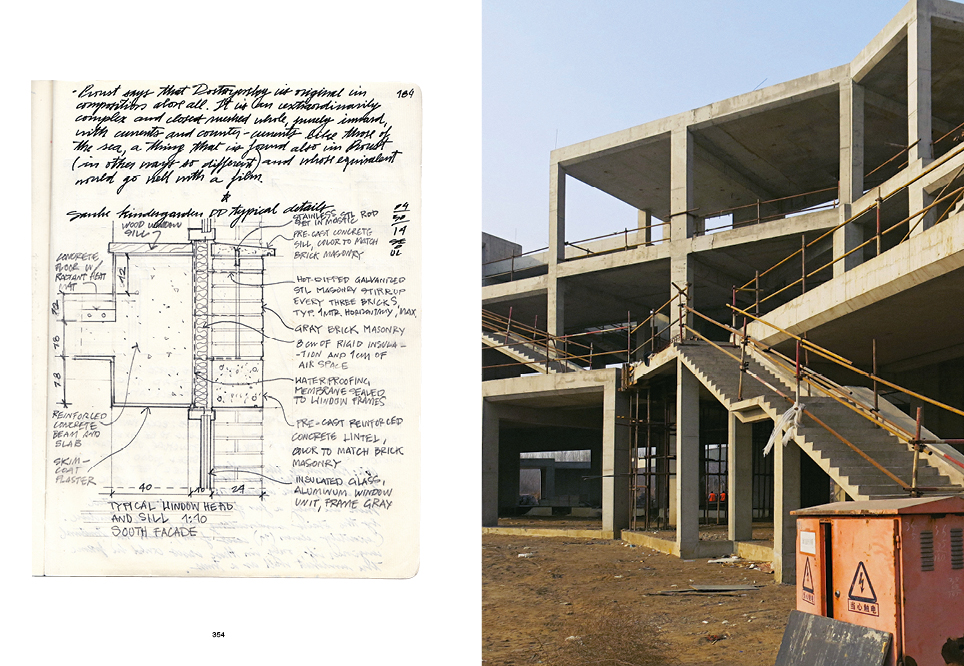 - Proust says that Dostoyevsky is original in
composition above all. It is an extraordinarily
complex and closed meshed whole, purely inward,
with currents and counter-currents like those of
the sea, a thing that is found also in Proust
(in other ways so different) and whose equivalent
would go well with a film.
184
*
kindergarden DD typical details
09
14
STAINLESS STL ROD
SET IN MASTIC
PRE-CAST CONCRETE
SILL, COLOR TO MATCH
BRICK MASONRY
WOOD WINDOW
SILL
CONCRETE
FLOOR W/
RADIANT HEAT
MAT
HOT-DIPPED GALVANIZED
STL MASONRY STIRRUP
EVERY THREE BRICKS,
TYP. 1MTR. HORIZONTALLY, MAX.
GRAY BRICK MASONRY
8 CM OF RIGID INSULA-
-TION AND 1 CM OF
AIR SPACE
WATERPROOFING
MEMBRANE SEALED
TO WINDOW FRAMES
PRE-CAST REINFORCED
CONCRETE LINTEL,
COLOR TO MATCH BRICK
MASONRY
INSULATED GLASS,
ALUMINUM WINDOW
UNIT, FRAME GRAY
REINFORCED
CONCRETE
BEAM AND
SLAB
SKIM-
COAT
PLASTER
42
78
78
40
10
24
TYPICAL WINDOW HEAD
AND SILL 1:10
SOUTH FACADE
354
当心触电